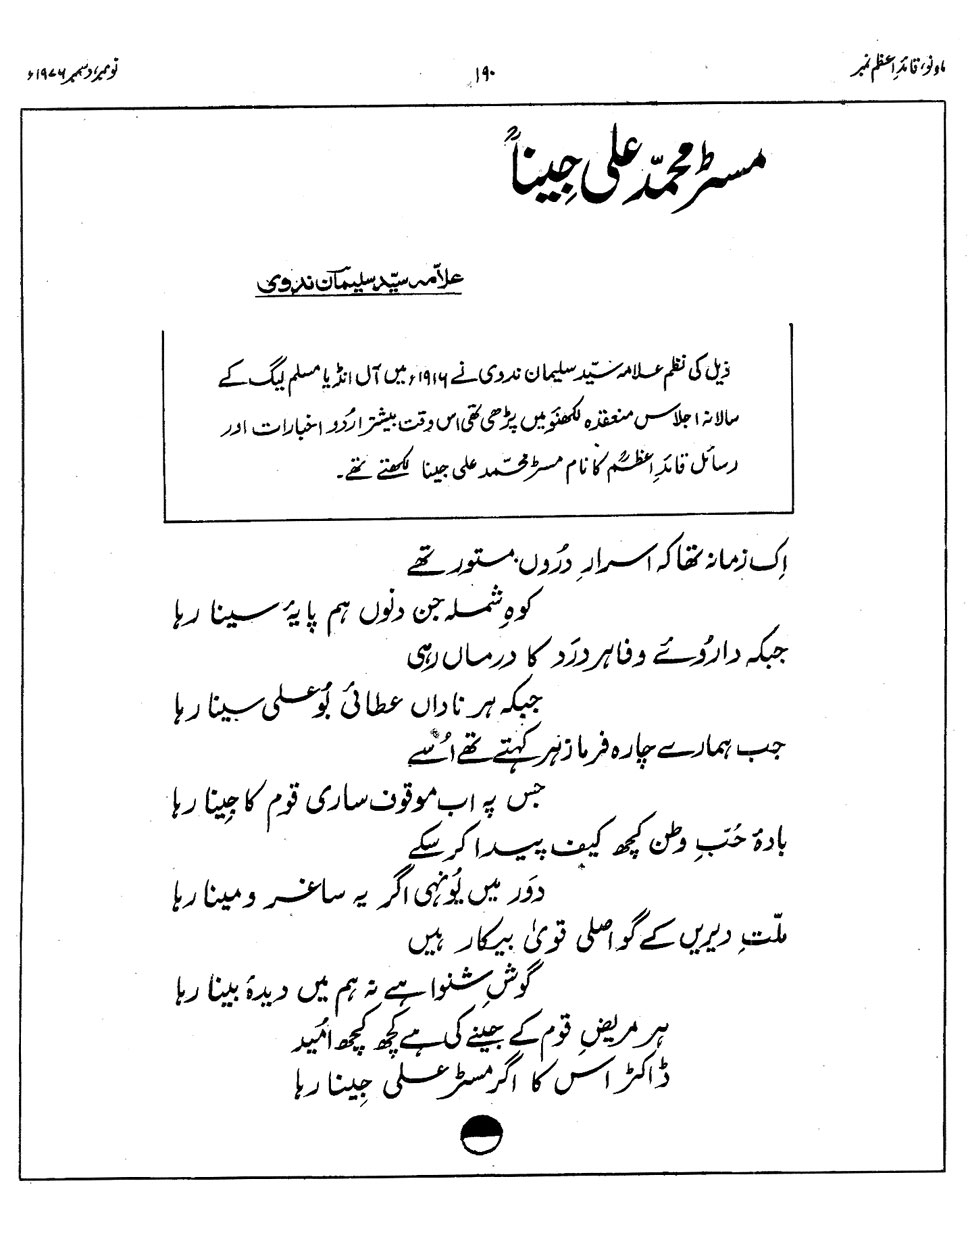 ماہ نو، قائدِ اعظم نمبر
۱۹۰
نومبر، دسمبر ۱۹۷۶ء
مسٹر محمّد علی جِیناؒ
علاّمہ سیّد سلیمان ندوی
ذیل کی نظم علامہ سیّد سلیمان ندوی نے ۱۹۱۶ء میں آل انڈیا مسلم لیگ کے
سالانہ اجلاس منعقدہ لکھنؤ میں پڑھی تھی اس وقت بیشتر اُردو اخبارات اور
رسائل قائدِ اعظمؒ کا نام مسٹر محمّد علی جینا لکھتے تھے۔
اِک زمانہ تھا کہ اسرارِ دُروں مستور تھے
کوہِ شملہ جن دنوں ہم پایۂ سینا رہا
جبکہ داروئے وفا ہر دَرد کا درماں رہی
جبکہ ہر ناداں عطائی بُو علی سینا رہا
جب ہمارے چارہ فرما زہر کہتے تھے اُسے
جس پہ اب موقوف ساری قوم کا جِینا رہا
بادۂ حُبِّ وطن کچھ کیف پیدا کر سکے
دَور میں یُونہی اگر یہ ساغر و مینا رہا
ملّتِ دیریں کے گو اصلی قویٰ بیکار ہیں
گوشِ شنوا ہے نہ ہم میں دیدۂ بینا رہا
ہر مریضِ قوم کے جینے کی ہے کچھ کچھ اُمید
ڈاکٹر اس کا اگر مسٹر علی جِینا رہا